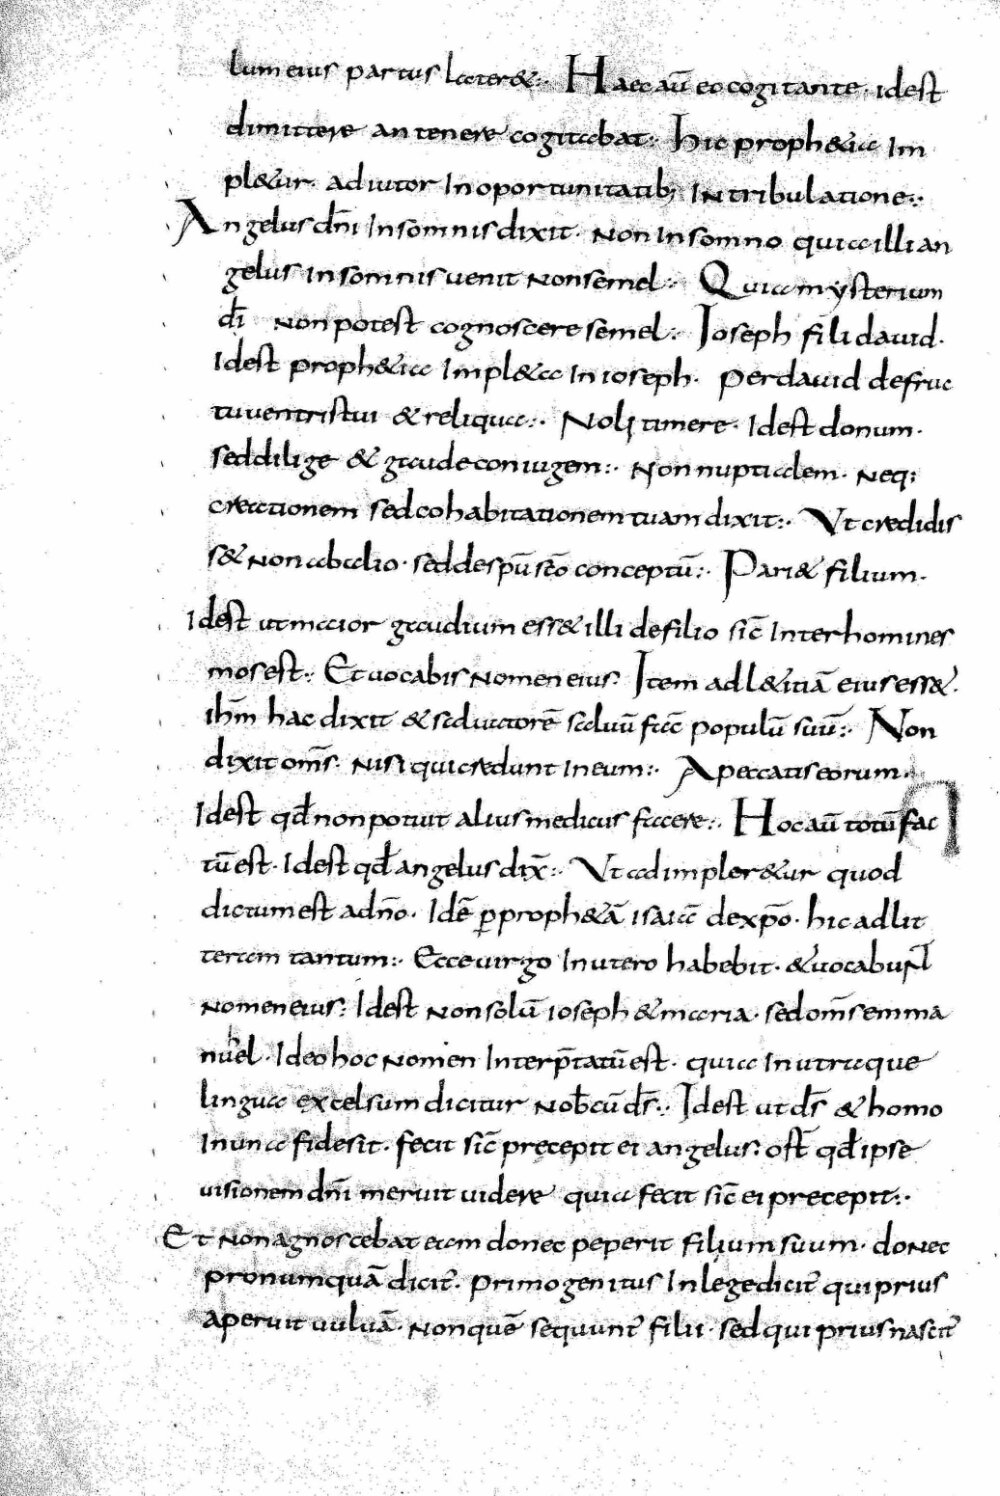 lum eius partus later&. Haec aū eo cogitante. idest
dimittere an tenere cogitabat. Hic proph&ia Im
pl&ur. adiutor In oportunitatib; In tribulatione.
Angelus dn̄i In somnis dixit. Non In somno quia illi an
gelus In somnis uenit Non semel. Quia mysterium
dī Non potest cognoscere semel. Ioseph fili dauid.
Idest proph&ia Impl&a In ioseph. Per dauid de fruc
tu uentris tui & reliqua. Noli timere. Idest donum.
sed dilige & gaude coniugem. Non nuptialem. Neq;
creationem sed cohabitationem tuam dixit. Vt credidis
s& Non ab alio. sed de sp̄u sc̄o conceptū. Pari& filium.
Idest ut maior gaudium ess& illi de filio sic̄ Inter homines
mos est. Et uocabis Nomen eius. Item ad l&itiā eius ess&.
ihm̄ hac dixit & saluatorē saluū fac̄ populū suū. Non
dixit om̄s. Nisi qui credunt In eum. A peccatis eorum.
Idest qd̄ non potuit alius medicus facere. Hoc aū totū fac
tū est. Idest qd̄ angelus dix̄. Vt adimpler&ur quod
dictum est a dn̄o. Idē p̄ proph&ā isaiā de xp̄o. hic ad lit
teram tantum. Ecce uirgo In utero habebit. & uocabunt̄
Nomen eius. Idest Non solū ioseph & maria. sed om̄s emma
nuhel. Ideo hoc Nomen Interp̄tatū est. quia In utraque
lingua excelsum dicitur Nob̄ cū ds̄. Idest ut ds̄ & homo
In una fide sit. fecit sic̄ precepit ei angelus. ost̄ qd̄ ipse
uisionem dn̄i meruit uidere quia fecit sic̄ ei precepit.
Et Non agnoscebat eam donec peperit filium suum. doNec
pro numquā dicit̄. primogenitus In lege dicit̄ qui prius
aperuit uuluā. Non quē sequunt̄ filii. sed qui prius nascit̄